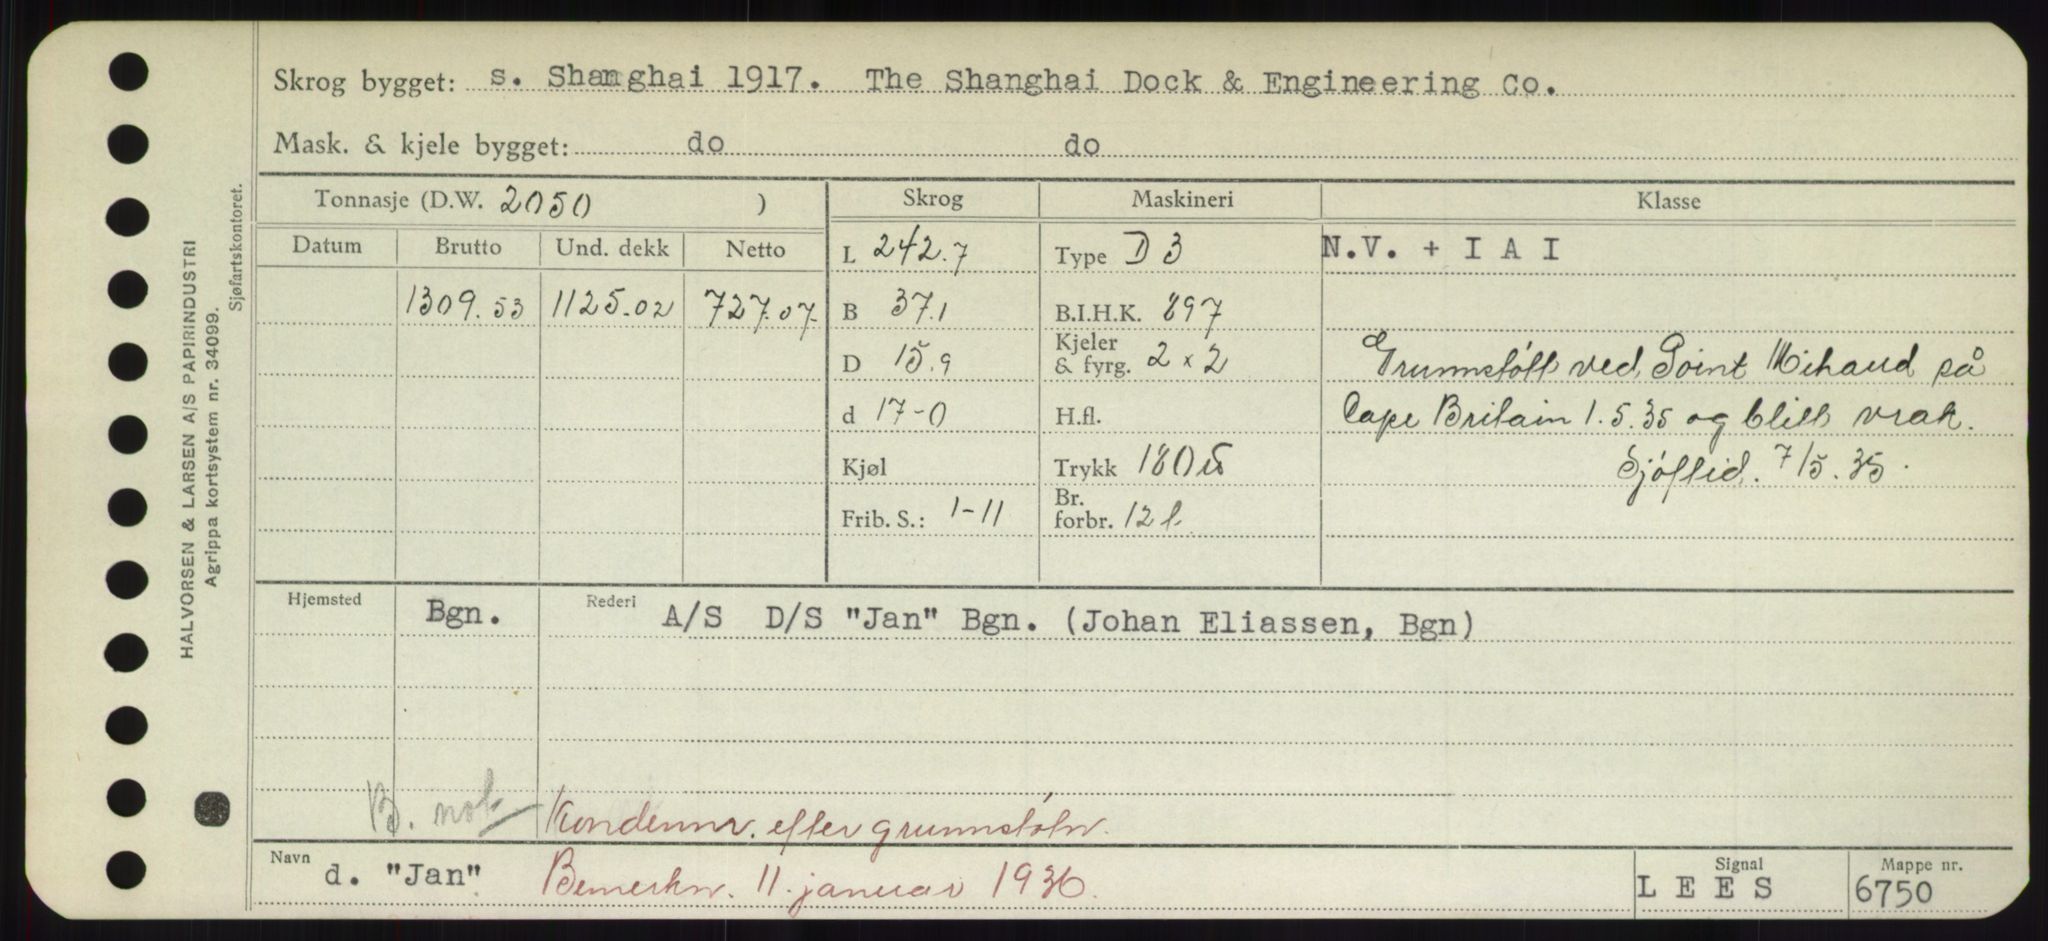 Skrog bygget: s. Shanghai 1917. The Shanghai Dock & Engineering Co.
Mask. & kjele bygget: do do
Tonnasje (D.W. 2050 )
Datum Brutto Und. dekk Netto
1309.53 1125.02 727.07
Skrog
L 242.7
B 37.1
D 15.9
d 17-0
Kjøl
Frib. S.: 1-11
Maskineri
Type D 3
B.I.H.K. 897
Kjeler
& fyrg. 2 x 2
H.fl.
Trykk 180
Br.
forbr. 12 t.
Klasse
N.V. + I A I
Grunnstött ved Point Mihaud på
Cape Britain 1.5.35 og blitt vrak.
Sjöftid. 7/5.35.
Hjemsted Bgn. Rederi A/S D/S "Jan" Bgn. (Johan Eliassen, Bgn)
B. not Kondemnr. efter grunnstötn.
Navn d. "Jan" Bemerkn. 11. januar 1936.
Signal LEES
Mappe nr. 6750
HALVORSEN & LARSEN A/S PAPIRINDUSTRI
Agrippa kortsystem nr. 34099.
Sjøfartskontoret.